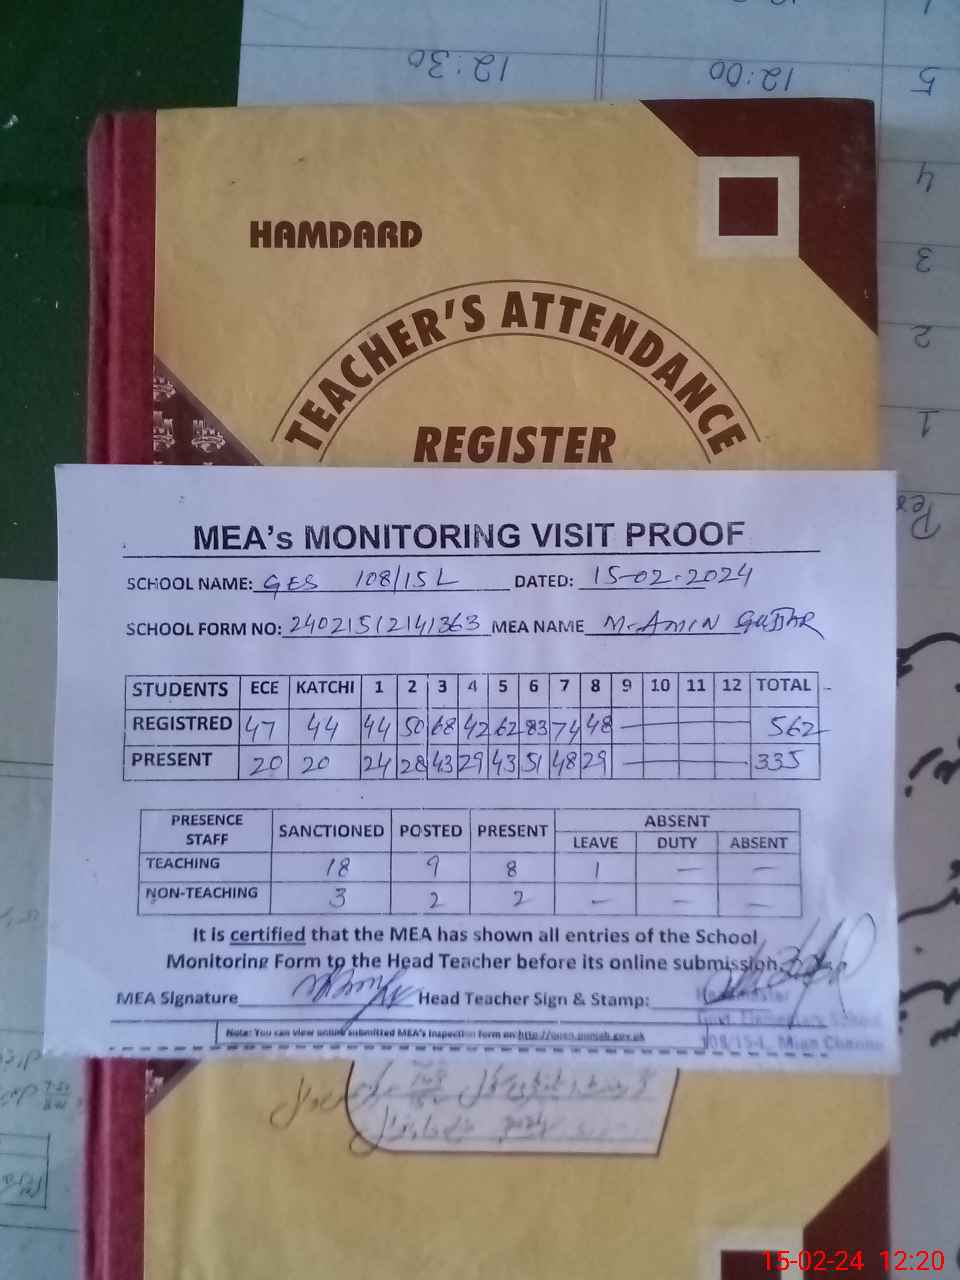 12:30
12:00
5
4
3
2
1
Per
HAMDARD
TEACHER'S ATTENDANCE
REGISTER
MEA's MONITORING VISIT PROOF
SCHOOL NAME: GES 108/15 L DATED: 15-02-2024
SCHOOL FORM NO: 24021512141363 MEA NAME M. AMIN GUJJAR
STUDENTS ECE KATCHI 1 2 3 4 5 6 7 8 9 10 11 12 TOTAL
REGISTRED 47 44 44 50 68 42 62 83 74 48 — 562
PRESENT 20 20 24 28 43 29 43 51 48 29 — 335
PRESENCE STAFF SANCTIONED POSTED PRESENT ABSENT
LEAVE DUTY ABSENT
TEACHING 18 9 8 1 — —
NON-TEACHING 3 2 2 — — —
It is certified that the MEA has shown all entries of the School
Monitoring Form to the Head Teacher before its online submission.
MEA Signature Head Teacher Sign & Stamp:
Headmaster
Govt. Elementary School
108/15-L, Mian Channu
Note: You can view online submitted MEA's inspection form on http://open.punjab.gov.pk
2024
15-02-24 12:20